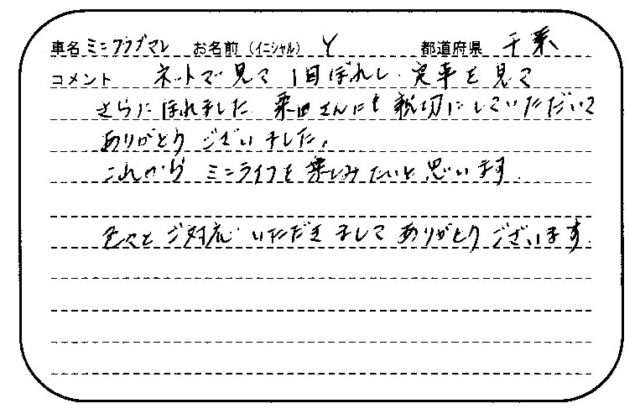 車名 ミニクラブマン お名前 (イニシャル) Y 都道府県 千葉
コメント ネットで見て 1目ぼれし、実車を見て
さらにほれました。栗田さんにも親切にしていただいて
ありがとうございました。
これから ミニライフを楽しみたいと思います。
色々とご対応いただきまして ありがとうございます。